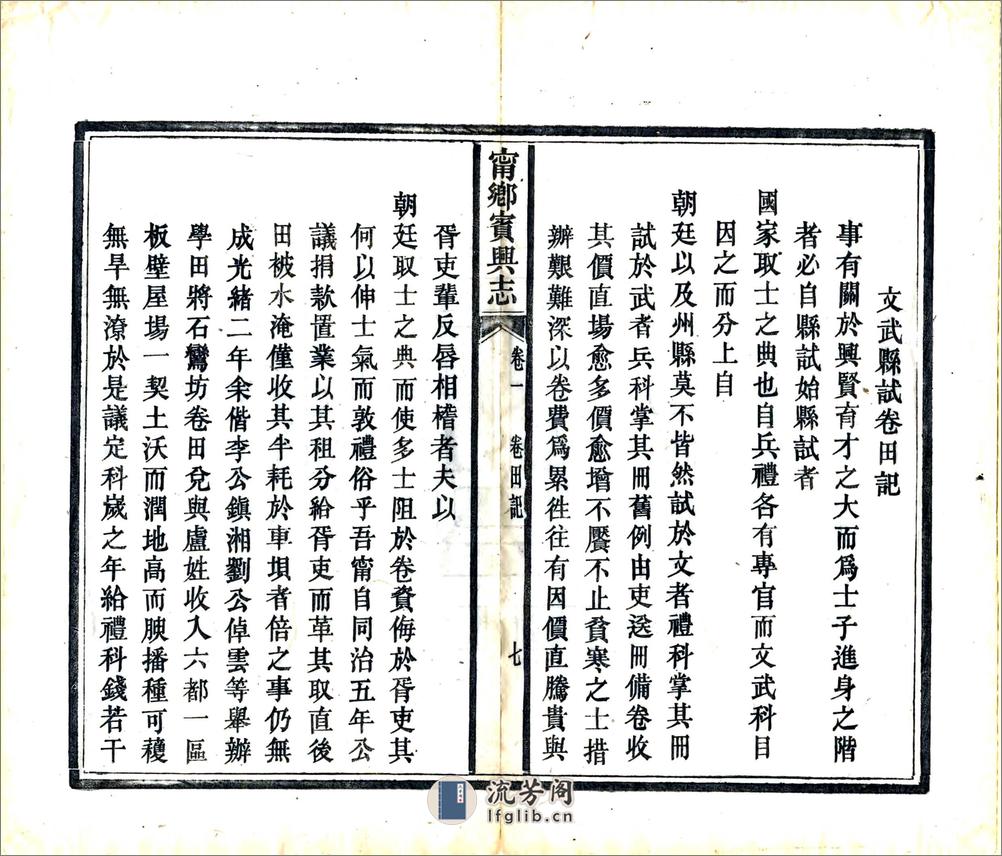 文武縣試卷田記
事有關於興賢育才之大而爲士子進身之階
者必自縣試始縣試者
國家取士之典也自兵禮各有專官而文武科目
因之而分上自
朝廷以及州縣莫不皆然試於文者禮科掌其冊
試於武者兵科掌其冊舊例由吏送冊備卷收
其價直場愈多價愈增不饜不止貧寒之士措
辦艱難深以卷費爲累徃往有因價直騰貴與
甯鄉賓興志
卷一
卷田記
七
胥吏輩反唇相稽者夫以
朝廷取士之典而使多士阻於卷資侮於胥吏其
何以伸士氣而敦禮俗乎吾甯自同治五年公
議捐款置業以其租分給胥吏而革其取直後
田被水淹僅收其半耗於車垻者倍之事仍無
成光緒二年余偕李公鎮湘劉公倬雲等舉辦
學田將石鸞坊卷田兌與盧姓收入六都一區
板壁屋場一契土沃而潤地高而腴播種可穫
無旱無潦於是議定科嵗之年給禮科錢若干
流芳阁
lfglib.cn